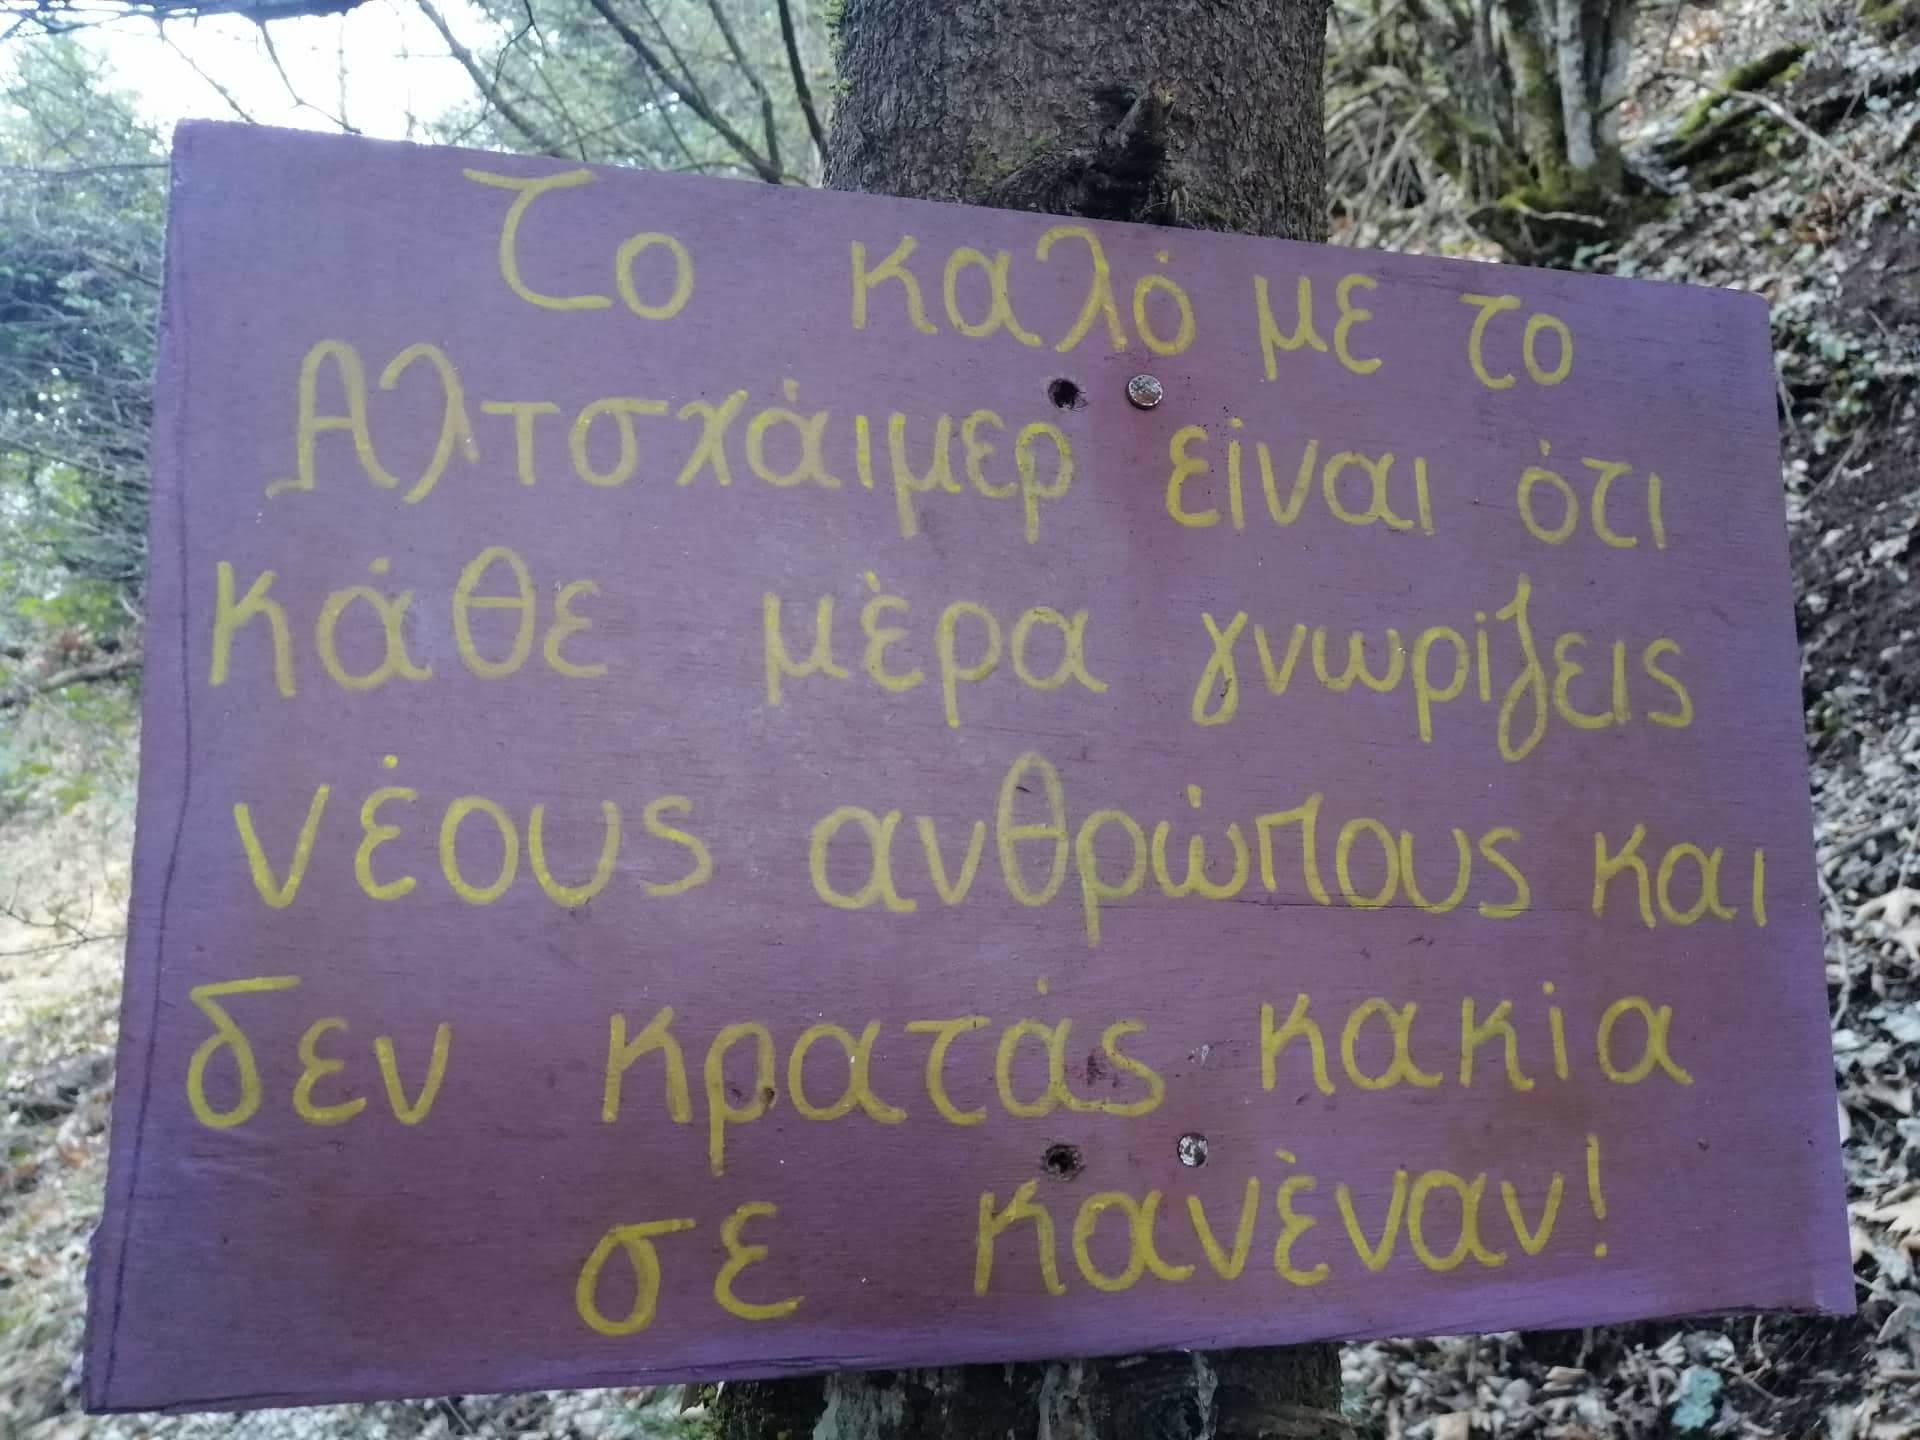 Το καλό με το
Αλτσχάιμερ είναι ότι
κάθε μέρα γνωρίζεις
νέους ανθρώπους και
δεν κρατάς κακία
σε κανέναν!